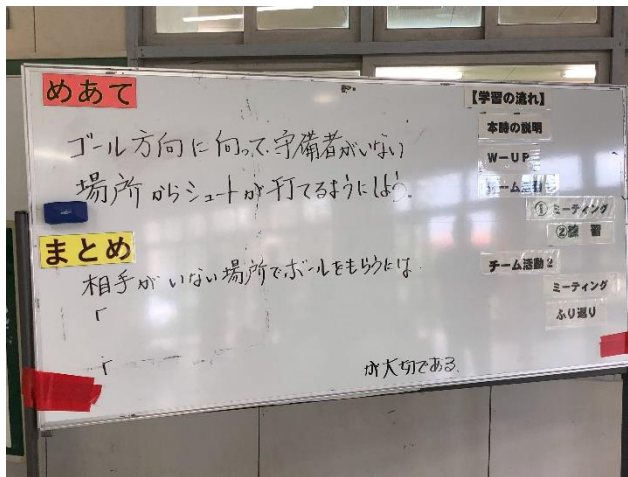 めあて
ゴール方向に向って、守備者がいない
場所からシュートが打てるようにしよう。
まとめ
相手がいない場所でボールをもらうには
「
「
が大切である
【学習の流れ】
本時の説明
W－UP
チーム活動
①ミーティング
②練習
チーム活動2
ミーティング
ふり返り